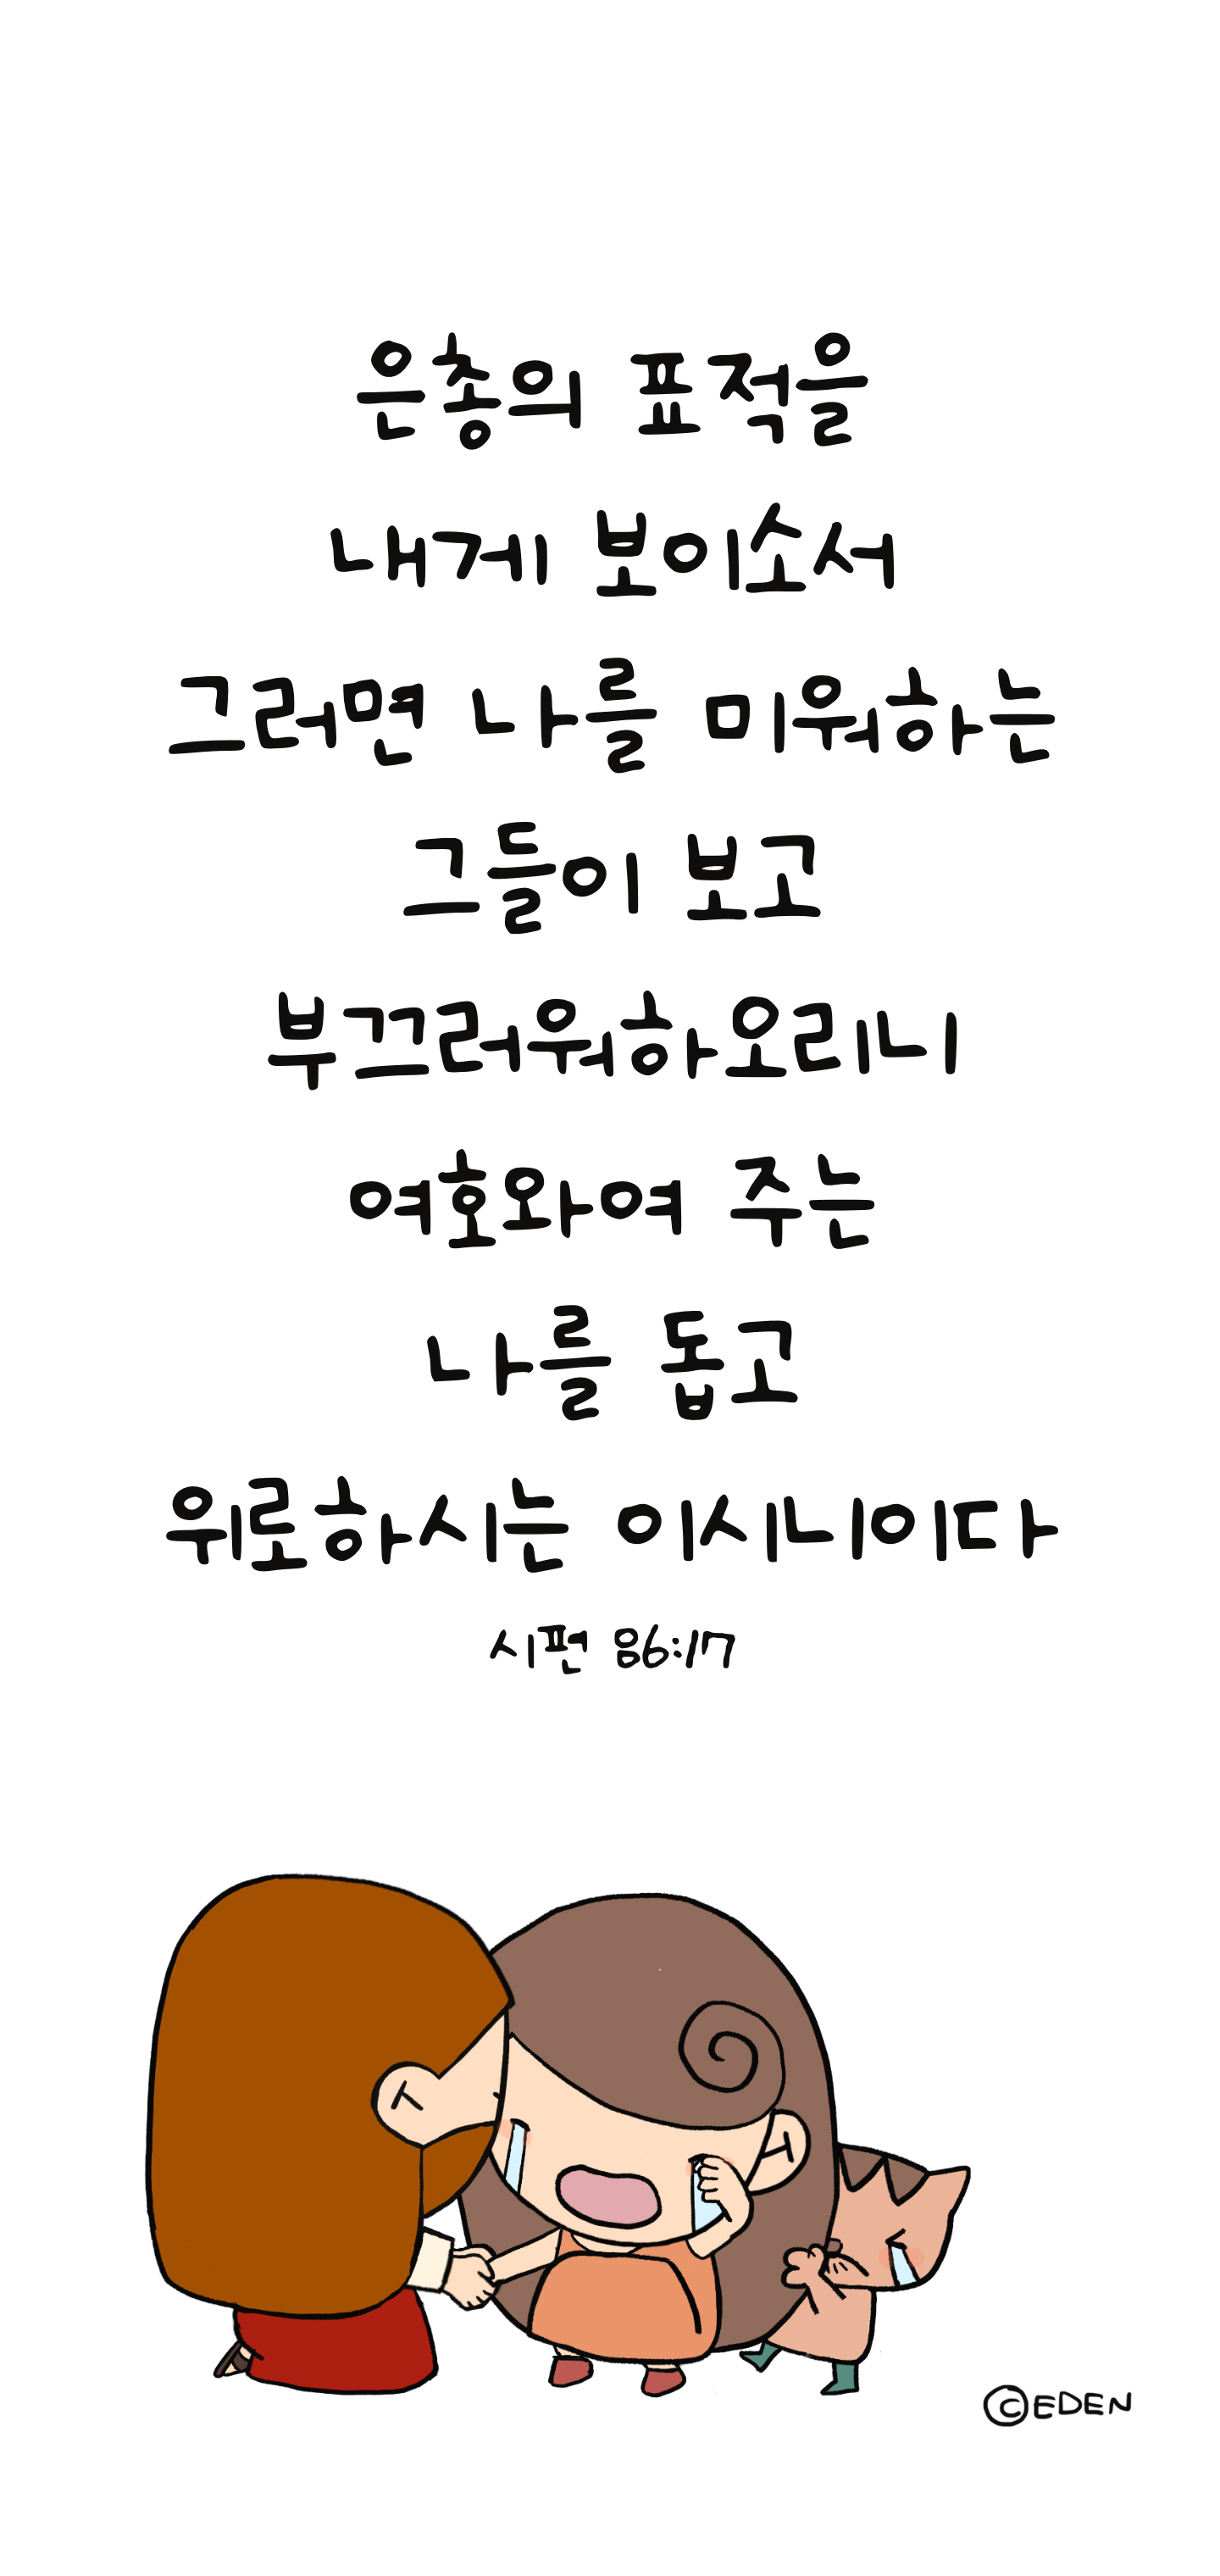 은총의 표적을
내게 보이소서
그러면 나를 미워하는
그들이 보고
부끄러워하오리니
여호와여 주는
나를 돕고
위로하시는 이시니이다
시편 86:17
©EDEN